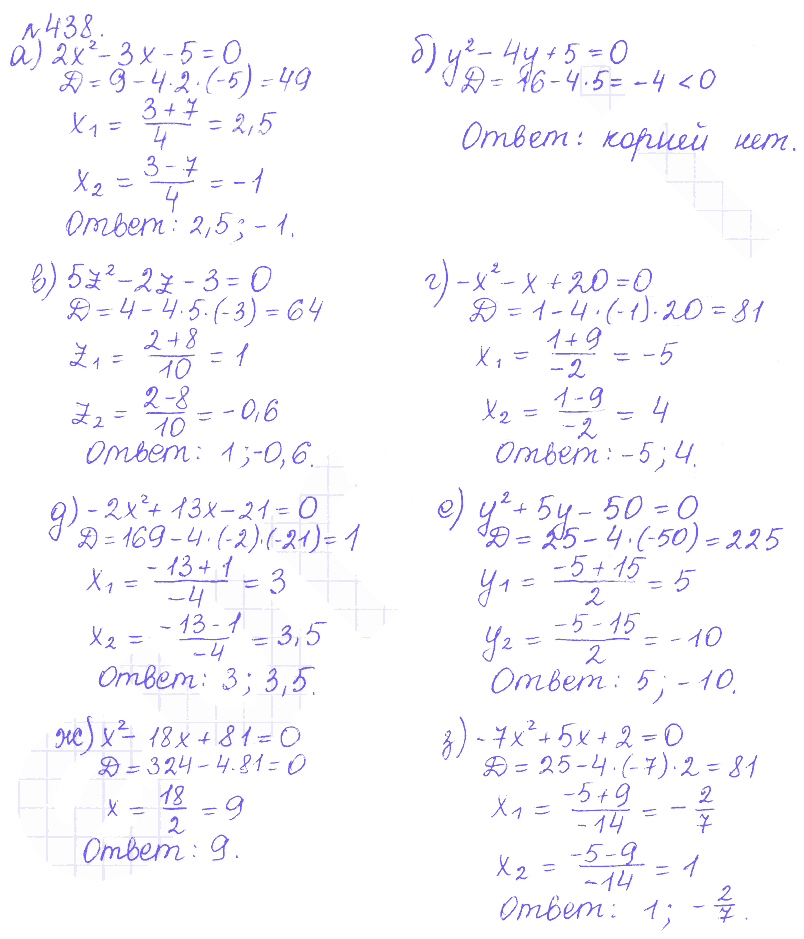 №438.
а) 2x² – 3x – 5 = 0
Д = 9 – 4·2·(-5) = 49
x₁ = (3+7)/4 = 2,5
x₂ = (3-7)/4 = -1
Ответ: 2,5; -1.
б) y² – 4y + 5 = 0
Д = 16 – 4·5 = -4 < 0
Ответ: корней нет.
в) 5z² – 2z – 3 = 0
Д = 4 – 4·5·(-3) = 64
z₁ = (2+8)/10 = 1
z₂ = (2-8)/10 = -0,6
Ответ: 1; -0,6.
г) -x² – x + 20 = 0
Д = 1 – 4·(-1)·20 = 81
x₁ = (1+9)/-2 = -5
x₂ = (1-9)/-2 = 4
Ответ: -5; 4.
д) -2x² + 13x – 21 = 0
Д = 169 – 4·(-2)·(-21) = 1
x₁ = (-13+1)/-4 = 3
x₂ = (-13-1)/-4 = 3,5
Ответ: 3; 3,5.
е) y² + 5y – 50 = 0
Д = 25 – 4·(-50) = 225
y₁ = (-5+15)/2 = 5
y₂ = (-5-15)/2 = -10
Ответ: 5; -10.
ж) x² – 18x + 81 = 0
Д = 324 – 4·81 = 0
x = 18/2 = 9
Ответ: 9.
з) -7x² + 5x + 2 = 0
Д = 25 – 4·(-7)·2 = 81
x₁ = (-5+9)/-14 = -2/7
x₂ = (-5-9)/-14 = 1
Ответ: 1; -2/7.